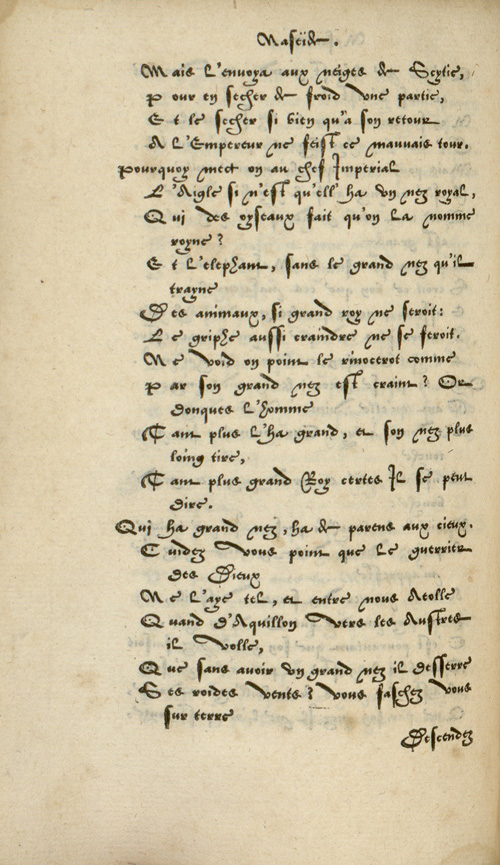 Naseïde.
Mais l'enuoya aux neiges de Scytie,
Pour en secher de froid vne partie,
Et le secher si bien qu'a son retour
A l'Empereur ne feist ce mauuais tour.
Pourquoy mect on au chef Imperial
L'Aigle si n'est qu'ell' ha vn nez royal,
Qui des oyseaux fait qu'on la nomme
royne?
Et l'elephant, sans le grand nez qu'il
trayne
Des animaux, si grand roy ne seroit:
Le griphe aussi craindre ne se feroit.
Ne void on point le rinocerot comme
Par son grand nez est craint? Or
donques l'homme
Tant plus l'ha grand, et son nez plus
loing tire,
Tant plus grand Roy certes Il se peut
dire.
Qui ha grand nez, ha de parens aux cieux.
Cuidez vous point que le guerrier
des Dieux
Ne l'aye tel, et entre nous Aeolle
Quand d'Aquillon vers les Austres
il volle,
Que sans avoir vn grand nez il desserre
Ses roides vents? vous faschez vous
sur terre
Descendez